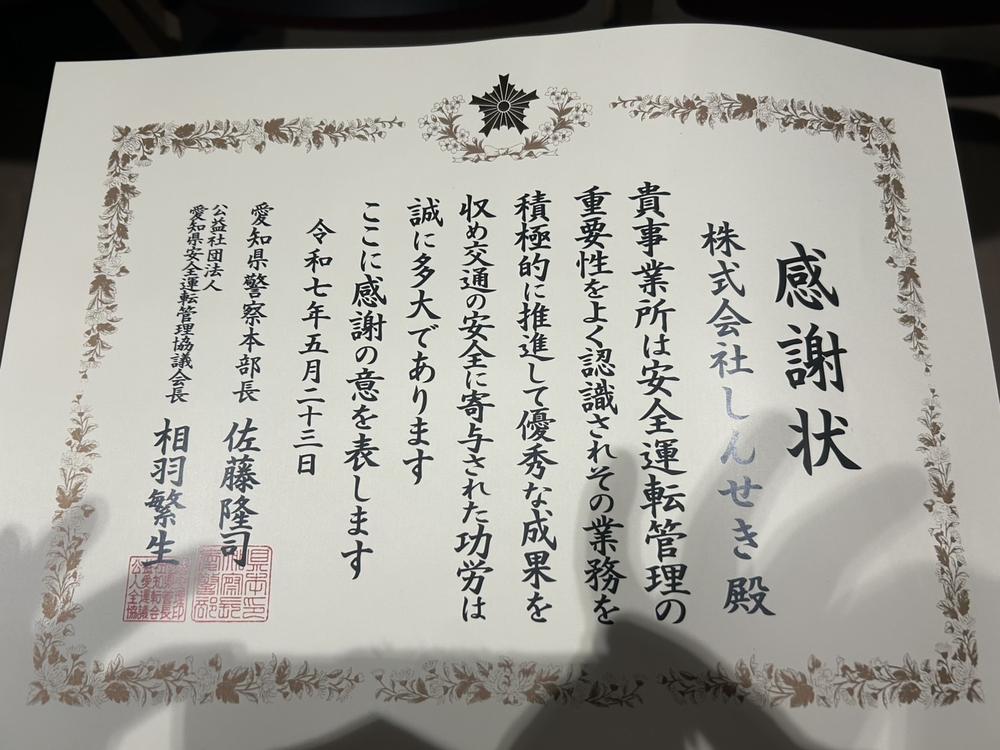 感謝状
株式会社しんせき 殿
貴事業所は安全運転管理の
重要性をよく認識されその業務を
積極的に推進して優秀な成果を
収め交通の安全に寄与された功労は
誠に多大であります
ここに感謝の意を表します
令和七年五月二十三日
愛知県警察本部長 佐藤隆司
公益社団法人
愛知県安全運転管理協議会長 相羽繁生